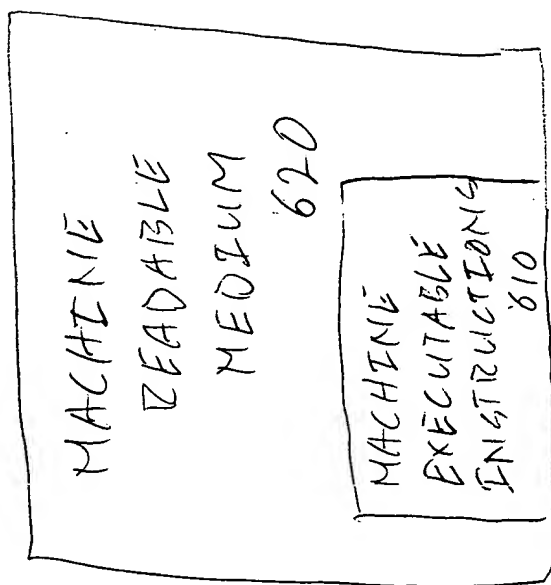 MACHINE
READABLE
MEDIUM
620
MACHINE
EXECUTABLE
INSTRUCTIONS
610